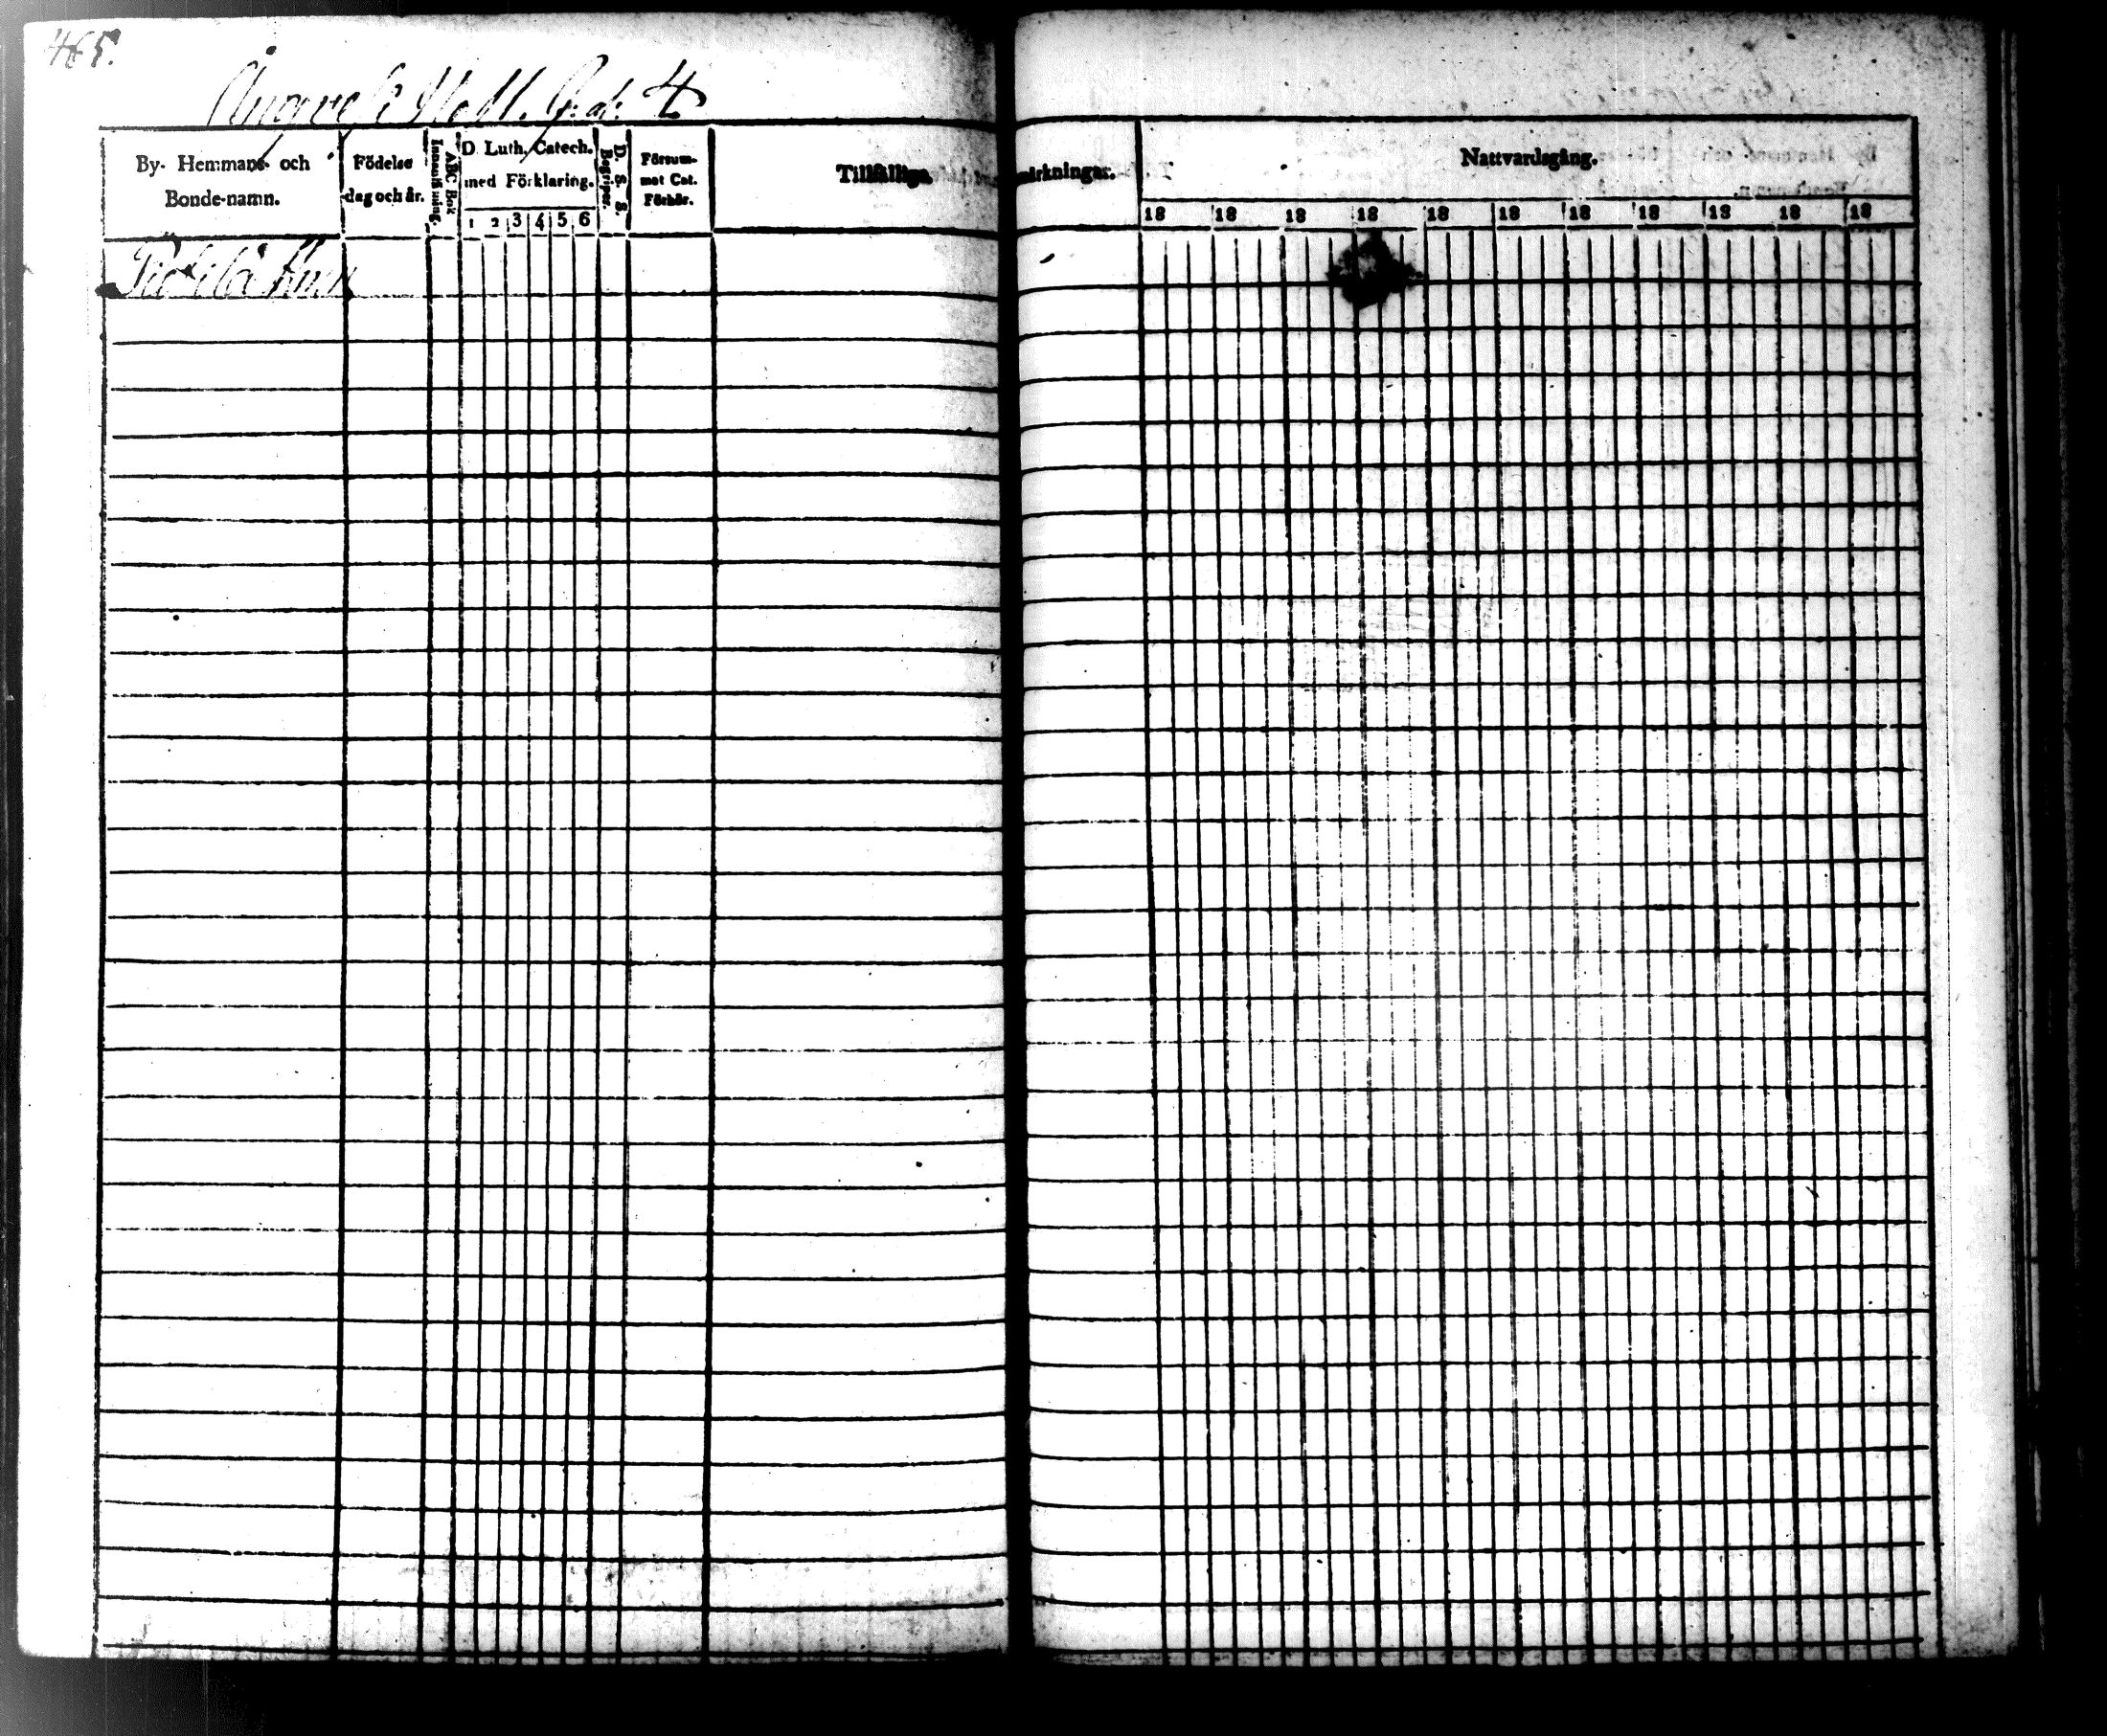 465.
4
By- Hemmans och Bonde-namn.
Födelse dag och år.
ABC Bok Innanläsning.
D. Luth. Catech. med Förklaring.
1 2 3 4 5 6
D. S. S. Begriper.
Försummat Cat. Förhör.
Tillfälliga
märkningar.
Nattvardsgång.
18 18 18 18 18 18 18 18 18 18 18